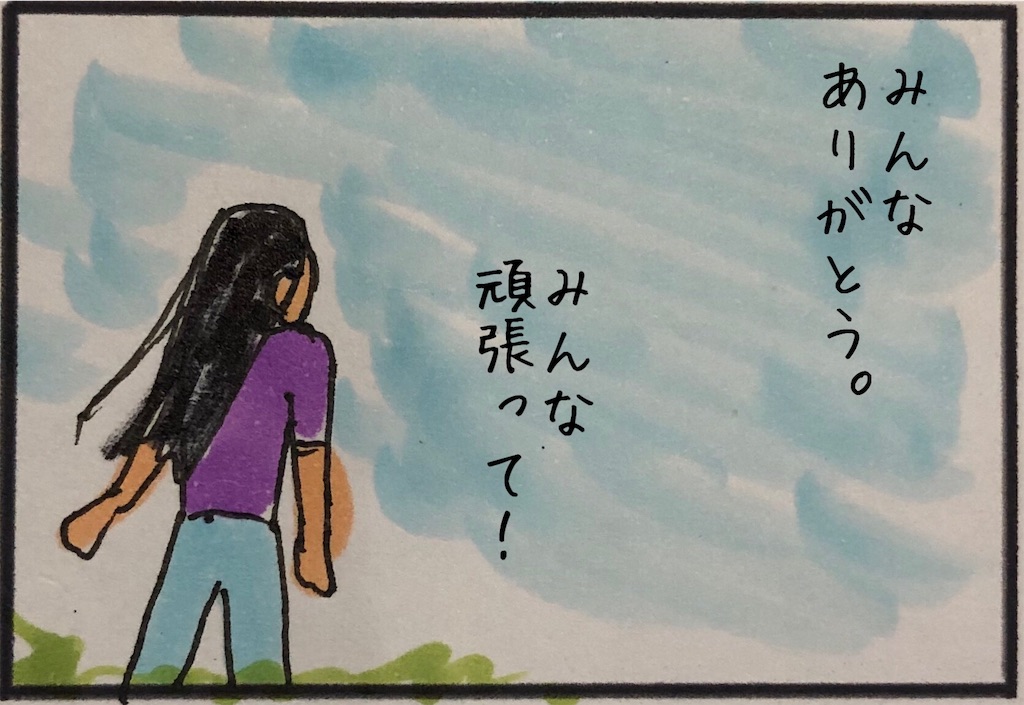 みんな
ありがとう。
みんな
頑張って!